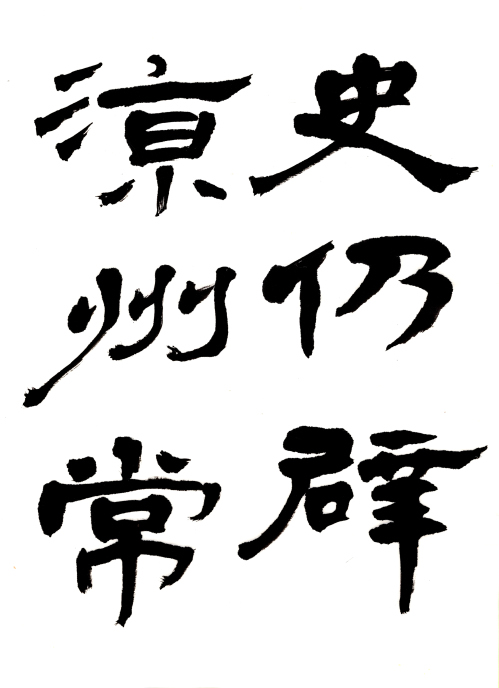 史仍辟
涼州常